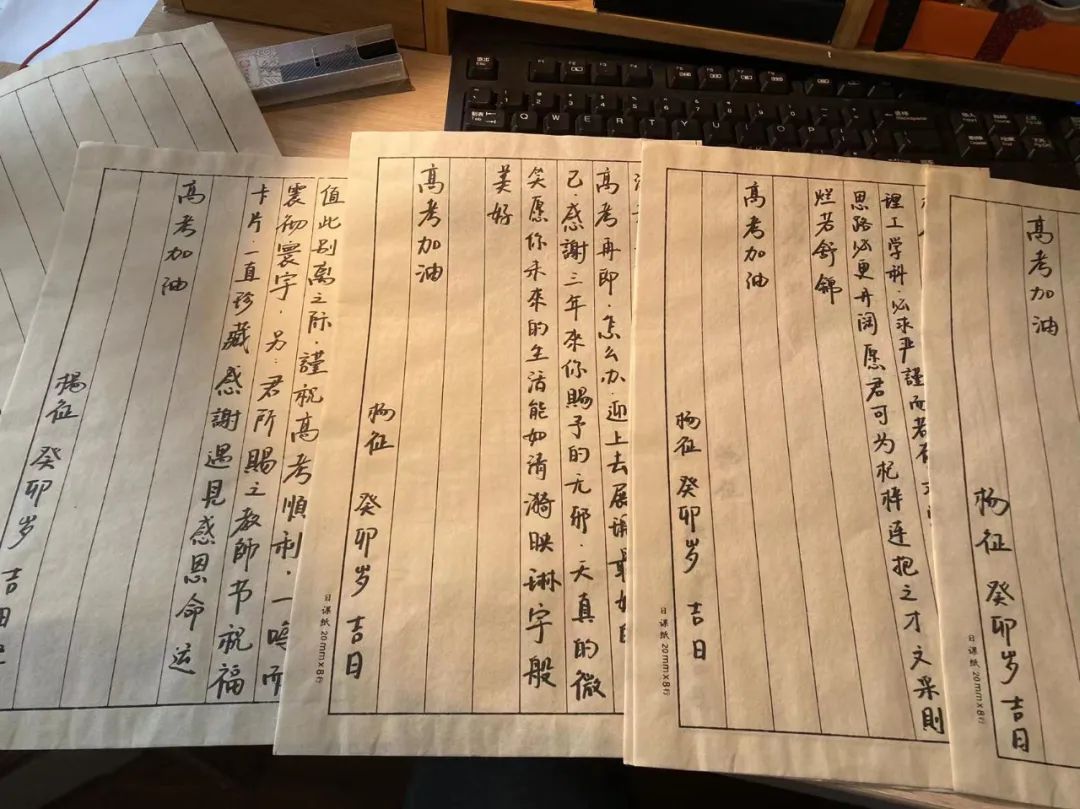 值此别离之际，謹祝高考順利，一鳴而
震彻寰宇，另：君所賜之教師书祝福
卡片，一直珍藏感謝遇見感恩命运
高考加油
杨征 癸卯岁 吉日
高考再即·怎么办·迎上去展
己·感謝三年来你賜予的无邪·天真的微
笑愿你未来的生活能如清漪映琳宇般
美好
高考加油
杨征 癸卯岁 吉日
日课纸 20mm×8行
理工学科·必求严謹而若
思路必更开阔愿君可为杞梓连抱之才文采則
烂若舒锦
高考加油
杨征 癸卯岁 吉日
日课纸 20mm×8行
高考加油
杨征 癸卯岁 吉日
日课纸 20mm×8行
Q W E R T Y U I O P